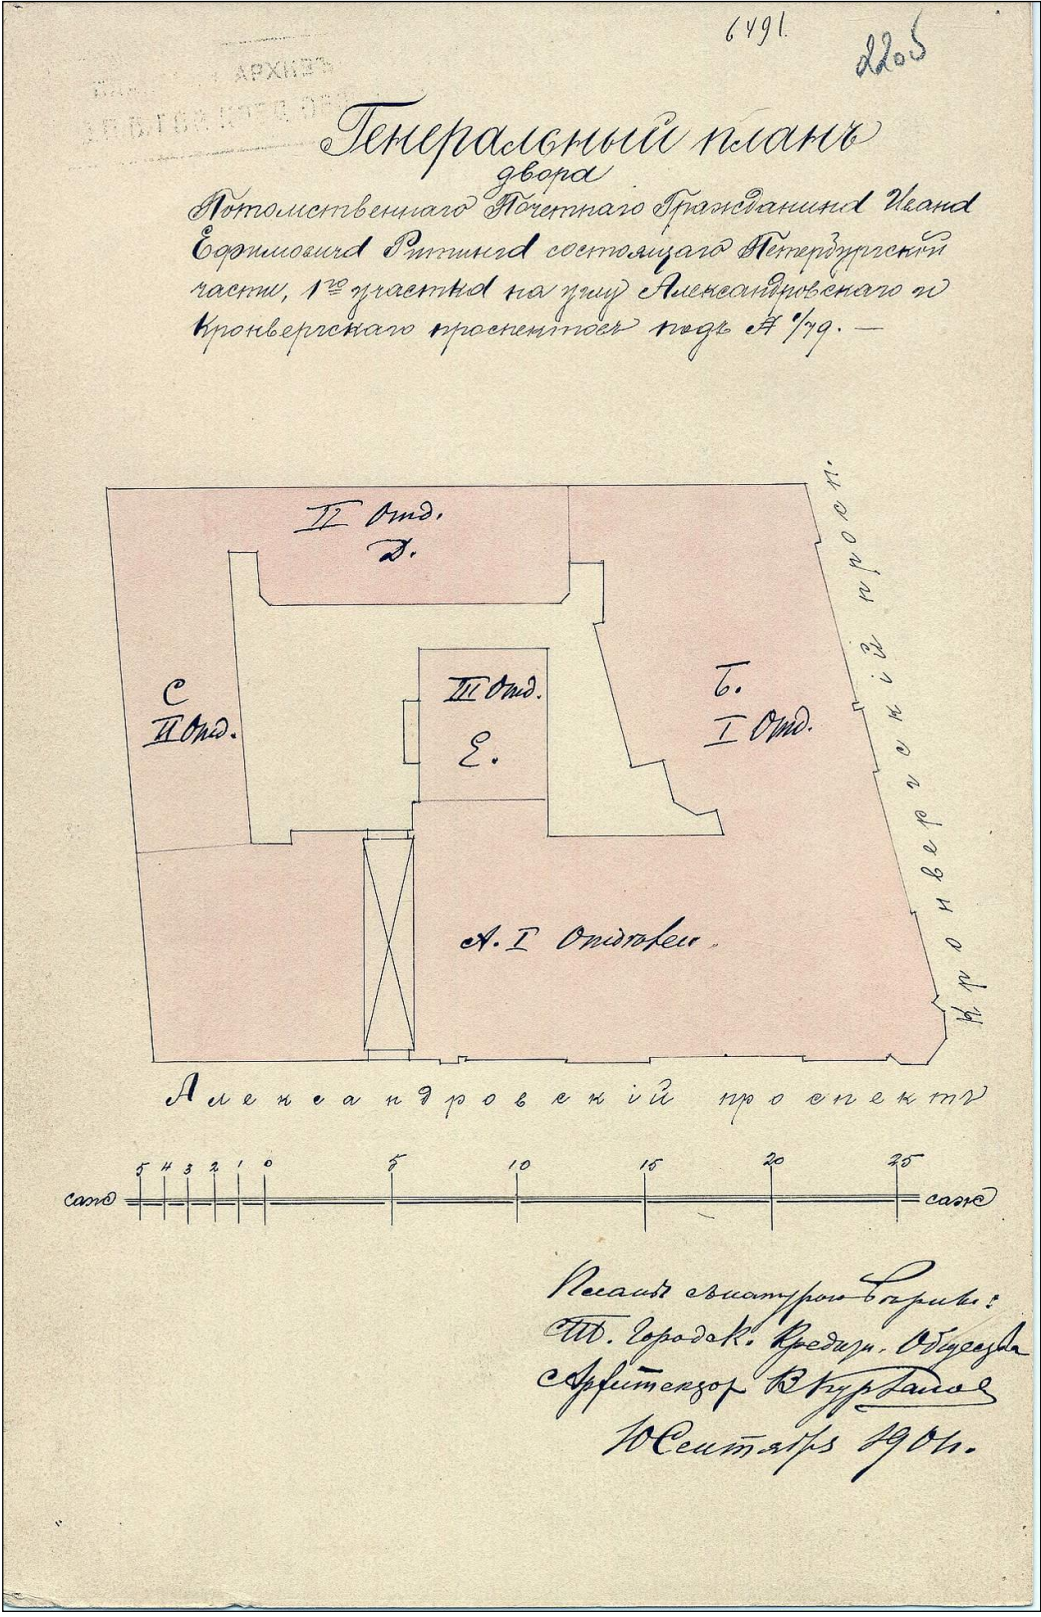 6491.
2205
АРХИВЪ
Генеральный планъ
двора
Потомственнаго Почетнаго Гражданина Ивана
Ефимовича Ритинга состоящаго Петербургской
части, 1го участка на углу Александровскаго и
Кронвергскаго проспектовъ подъ №/79. —
II Отд.
Д.
С
II Отд.
III Отд.
Е.
Б.
I Отд.
А. I
Кронвергскій просп.
Александровскій проспектъ
5 4 3 2 1 0 5 10 15 20 25
саж саж
Планъ съ натурою вѣрны:
Городск. Кредит. Общества
Архитекторъ В Курбановъ
10 Сентябрь 1901 г.